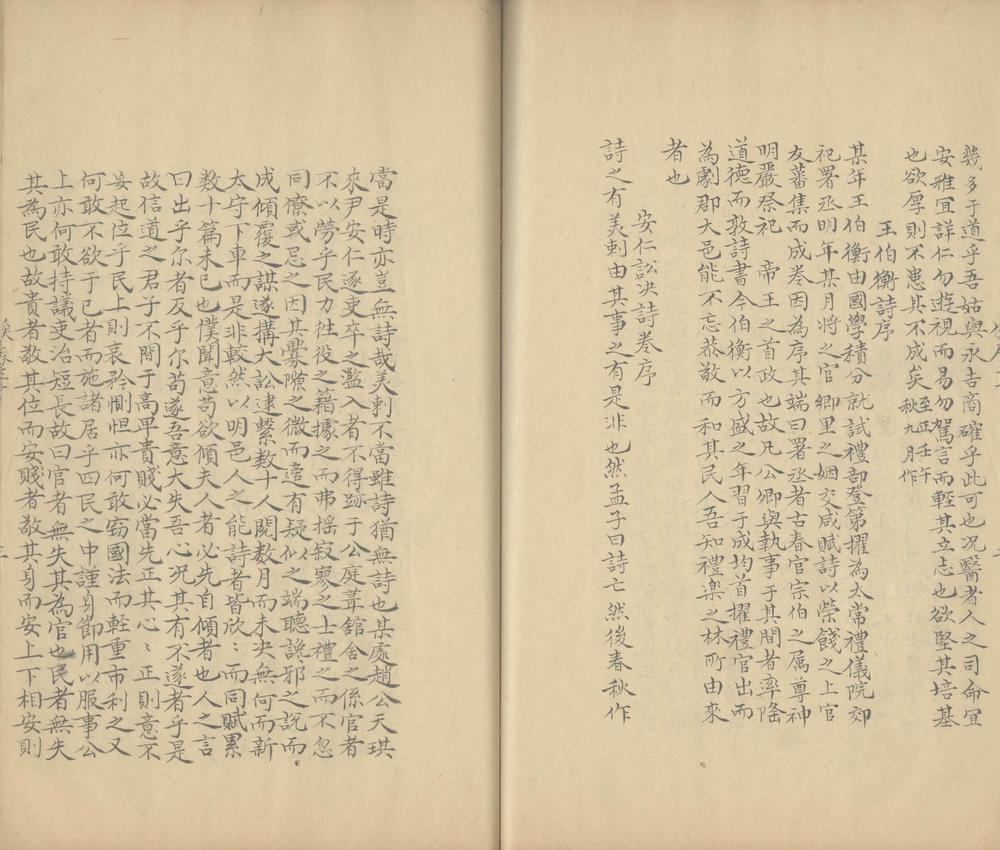 幾多于道乎吾姑與永吉商確乎此可也况醫者人之司命宜
安雅宜詳仁勿遊視而易勿駕言而輕其立志也欲堅其培基
也欲厚則不患其不成矣至正壬午秋九月作
王伯衡詩序
某年王伯衡由國學積分就試禮部登第擢為太常禮儀院郊
祀署丞明年某月將之官鄉里之姻交咸賦詩以榮餞之上官
友蕃集而成卷因為序其端曰署丞者古春官宗伯之属尊神
明嚴祭祀帝王之首政也故凡公卿與執事于其間者率隆
道德而敦詩書今伯衡以方盛之年習于成均首擢禮官出而
為劇郡大邑能不忘恭敬而和其民人吾知禮樂之林所由來
者也
安仁訟决詩卷序
詩之有美刺由其事之有是非也然孟子曰詩亡然後春秋作
當是時亦豈無詩哉美刺不當雖詩猶無詩也某處趙公天琪
來尹安仁逐吏卒之濫入者不得跡于公庭葺舘舍之係官者
不以勞乎民力社役之籍據之而弗揺寂寥之士禮之而不忽
同僚或忌之因其釁隙之微而造有疑似之端聽讒邪之說而
成傾覆之謀遂搆大訟逮繫數十人閱數月而未决無何而新
太守下車而是非較然以明邑人之能詩者皆欣〻而同賦累
數十篇未已也僕聞意苟欲傾夫人者必先自傾者也人之言
曰出乎尔者反乎尔苟遂吾意大失吾心况其有不遂者乎是
故信道之君子不問于高卑貴賤必當先正其心〻正則意不
妄起位乎民上則哀矜惻怛亦何敢竊國法而輕重市利之又
何敢不欲于已者而施諸居乎四民之中謹身節用以服事公
上亦何敢持議吏治短長故曰官者無失其為官也民者無失
其為民也故貴者敬其位而安賤者敬其身而安上下相安則